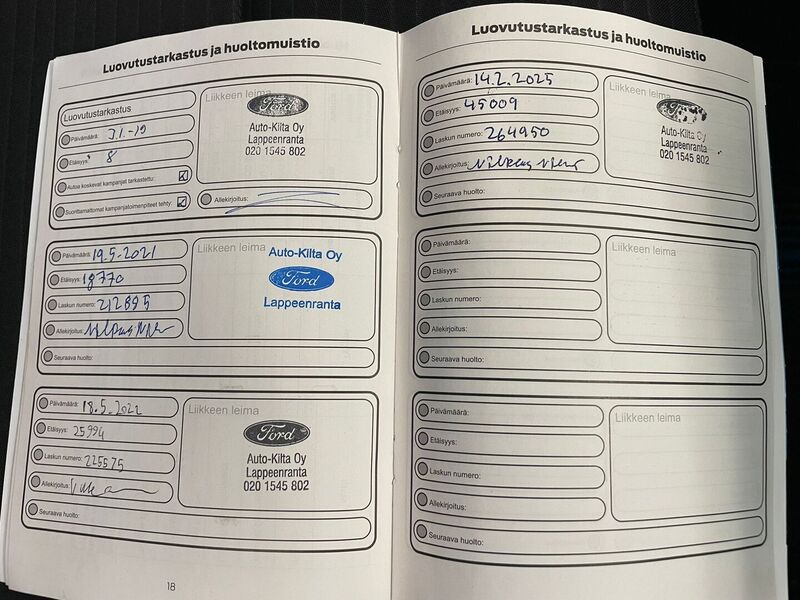 Luovutustarkastus ja huoltomuistio
Luovutustarkastus
Päivämäärä:
Etäisyys: 8
Autoa koskevat kampanjat tarkastettu:
Suorittamattomat kampanjatoimenpiteet tehty:
Liikkeen leima
Ford
Auto-Kilta Oy
Lappeenranta
020 1545 802
Allekirjoitus:
Päivämäärä: 19.5.2021
Etäisyys: 18770
Laskun numero: 212895
Allekirjoitus:
Seuraava huolto:
Liikkeen leima
Auto-Kilta Oy
Ford
Lappeenranta
Päivämäärä: 18.5.2022
Etäisyys: 25994
Laskun numero: 225575
Allekirjoitus:
Seuraava huolto:
Liikkeen leima
Ford
Auto-Kilta Oy
Lappeenranta
020 1545 802
18
Luovutustarkastus ja huoltomuistio
Päivämäärä: 14.2.2025
Etäisyys: 45009
Laskun numero: 264950
Allekirjoitus:
Seuraava huolto:
Liikkeen leima
Ford
Auto-Kilta Oy
Lappeenranta
020 1545 802
Päivämäärä:
Etäisyys:
Laskun numero:
Allekirjoitus:
Seuraava huolto:
Liikkeen leima
Päivämäärä:
Etäisyys:
Laskun numero:
Allekirjoitus:
Seuraava huolto:
Liikkeen leima